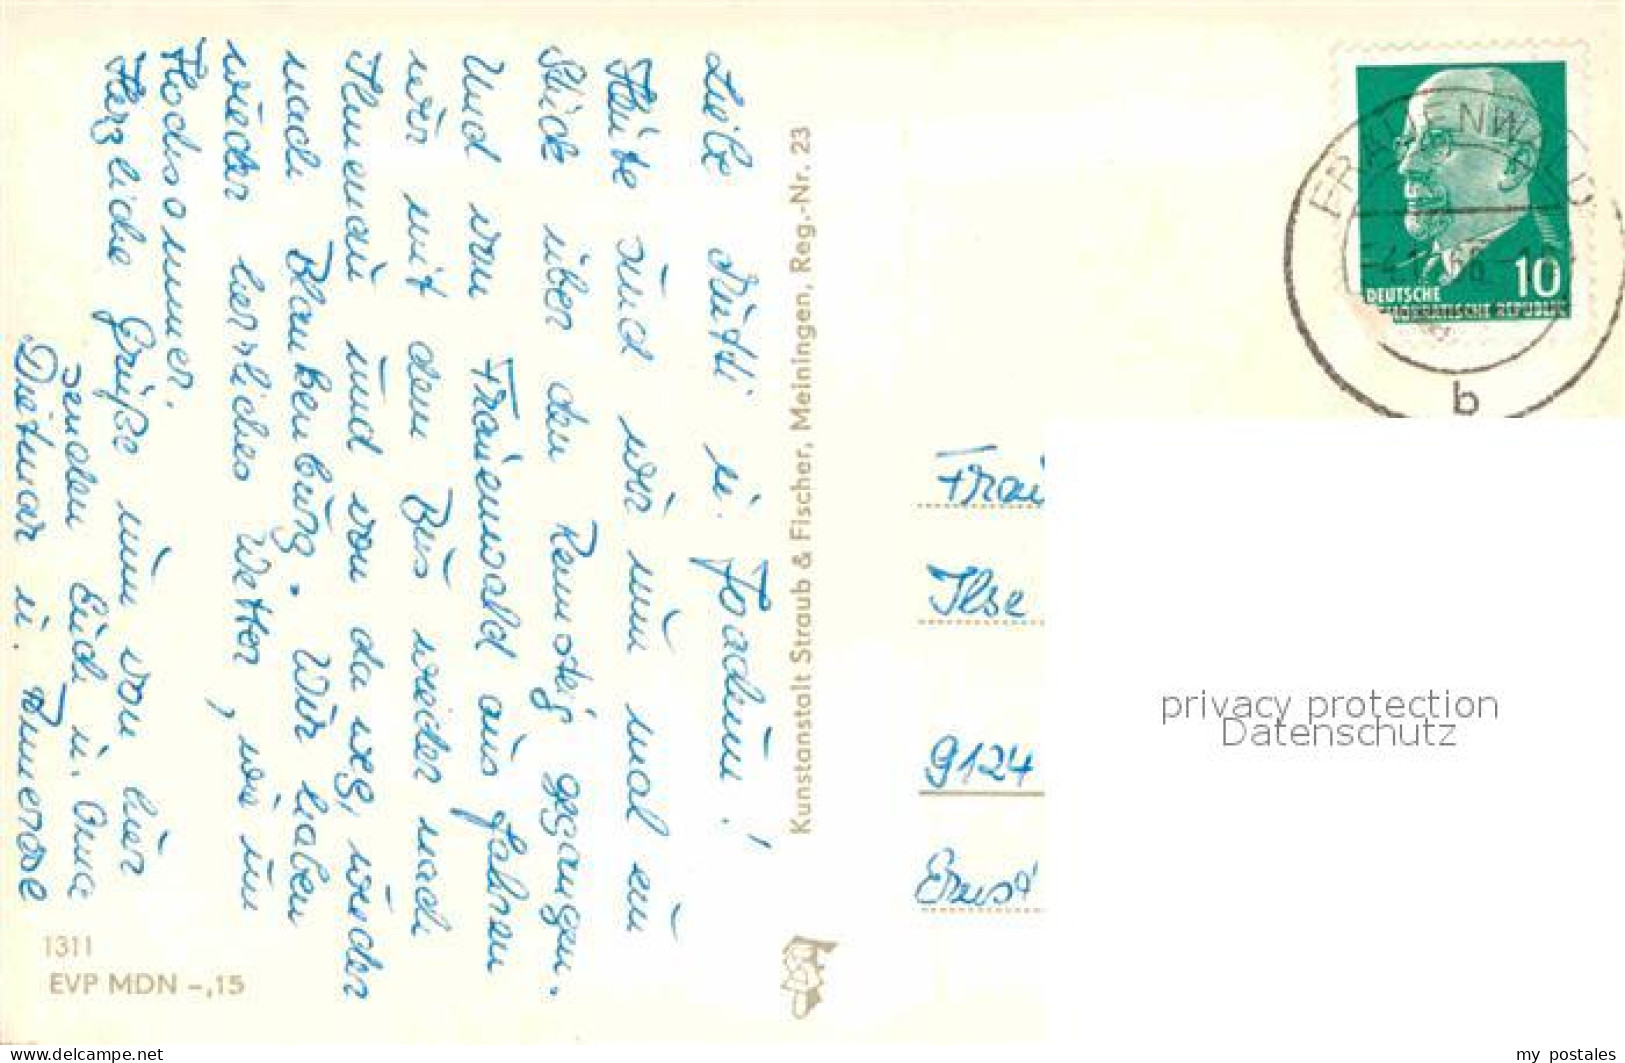 Liebe Mutti u. Joachim!
Heute sind wir nun mal ein
Stück über den Rennsteig gegangen.
Und von Frauenwald aus fahren
wir mit dem Bus wieder nach
Ilmenau und von da weg, wieder
nach Blankenburg. Wir haben
wieder herrliches Wetter, wie im
Hochsommer.
Herzliche Grüße nun von hier
senden Euch u. Oma
Dietmar u. Annerose
1311
EVP MDN -,15
Kunstanstalt Straub & Fischer, Meiningen, Reg.-Nr. 23
FRAUENWALD
b
10
DEUTSCHE
DEMOKRATISCHE REPUBLIK
Frau
Ilse
9124
Ernst
privacy protection
Datenschutz
www.delcampe.net
my_postales